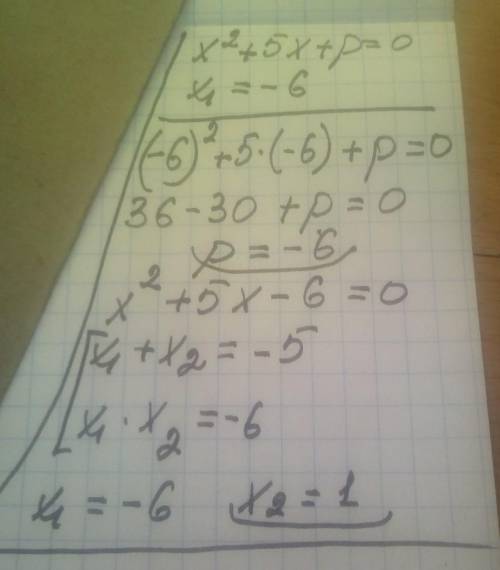 x²+5x+p=0
x₁=-6
(-6)²+5·(-6)+p=0
36-30+p=0
p=-6
x²+5x-6=0
x₁+x₂=-5
x₁·x₂=-6
x₁=-6 x₂=1